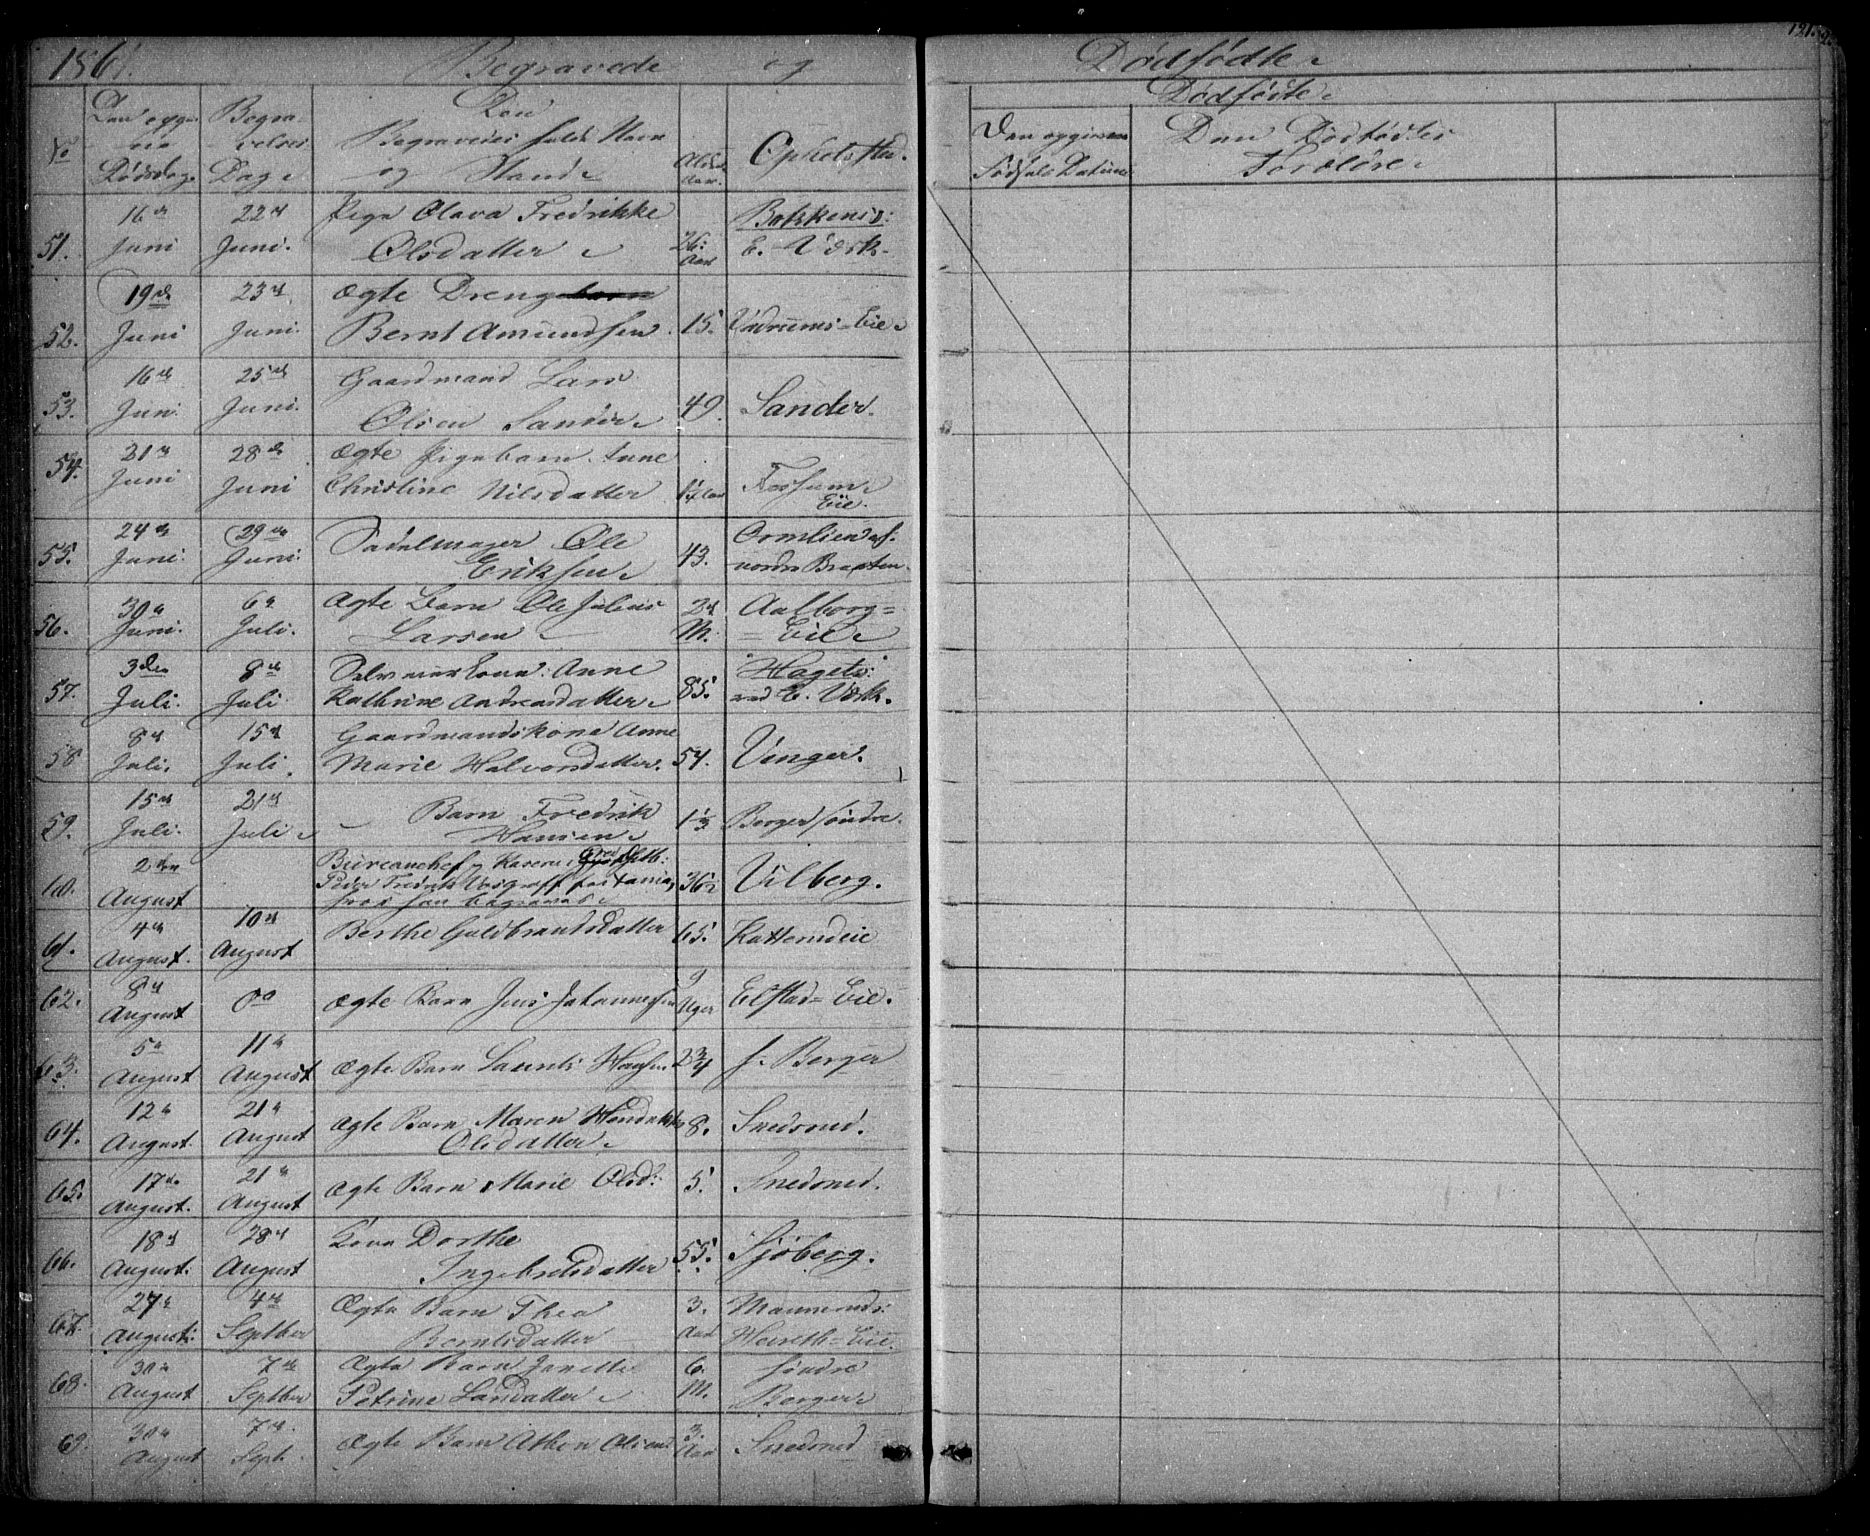 1861. Begravede og Dødfødte
121.
No
Den opgivne Dødsdag.
Begravelses Dag.
Den Begravedes fulde Navn og Stand.
Alder Aar.
Opholdssted.
Dødfødte.
Den opgivne Fødsels Datum
Den Dødfødtes Forældre
51.
16de Juni
22de Juni.
Pige Olava Fredrikke
Olsdatter
26: Aar
Bakkens:
E. Værk.
52.
19de Juni
23de Juni.
Ægte Drengebarn
Bernt Amundsen.
15.
Eie
53.
16de Juni.
25de Juni.
Gaardmand Lars
Olsen Sander
49.
Sander.
54.
21de Juni
28de Juni
Ægte Pigebarn Anne
Christine Nilsdatter
Fossum
Eie.
55.
24de Juni.
29de Juni.
Sadelmager Ole
Eriksen
43.
Ormlien af
nordre Braaten.
56.
30de Juni.
6te Juli.
Ægte Barn Ole Julius
Larsen
M.
Aalborg=
=Eie
57.
3die Juli.
8de Juli
Anne
Kathrine Andreasdatter
85.
"Haget"
ved E. Værk.
58
8de Juli.
15de Juli.
Gaardmandskone Anne
Marie Halvorsdatter.
54.
Unger.
59.
15de Juli.
21de Juli
Barn Fredrik
Hansen
1½
Berger søndre.
60.
2den August
Bureauchef og
Peder Fredrik
hvor han begraves.
36
Vilberg.
61.
4de August.
10de August
Berthe Guldbrandsdatter
65.
62.
8de August
Ægte Barn Jens Johannessen
9 Uger
Elstad=Eie.
63.
5te August
11te August
Ægte Barn Hansen
2¾
s. Berger
64.
12te August.
21de August
Ægte Barn Maren Hendrikke
Olsdatter
8.
Snedsned.
65.
17de August.
21de August
Ægte Barn Marie Olsd:
5.
Snedsned.
66.
18de August.
28de August
Kone Dorthe
Ingebretsdatter
55.
Sjøberg.
67.
27de August:
4de Septber
Ægte Barn Thea
Berntsdatter
3. Aar
Eie.
68.
30de August
7de Septber
Ægte Barn Janette
Petrine Larsdatter
6. M.
søndre
Berger
69.
30de August
7de Sept.
Ægte Barn Olsen
3. Aar
Snedsned